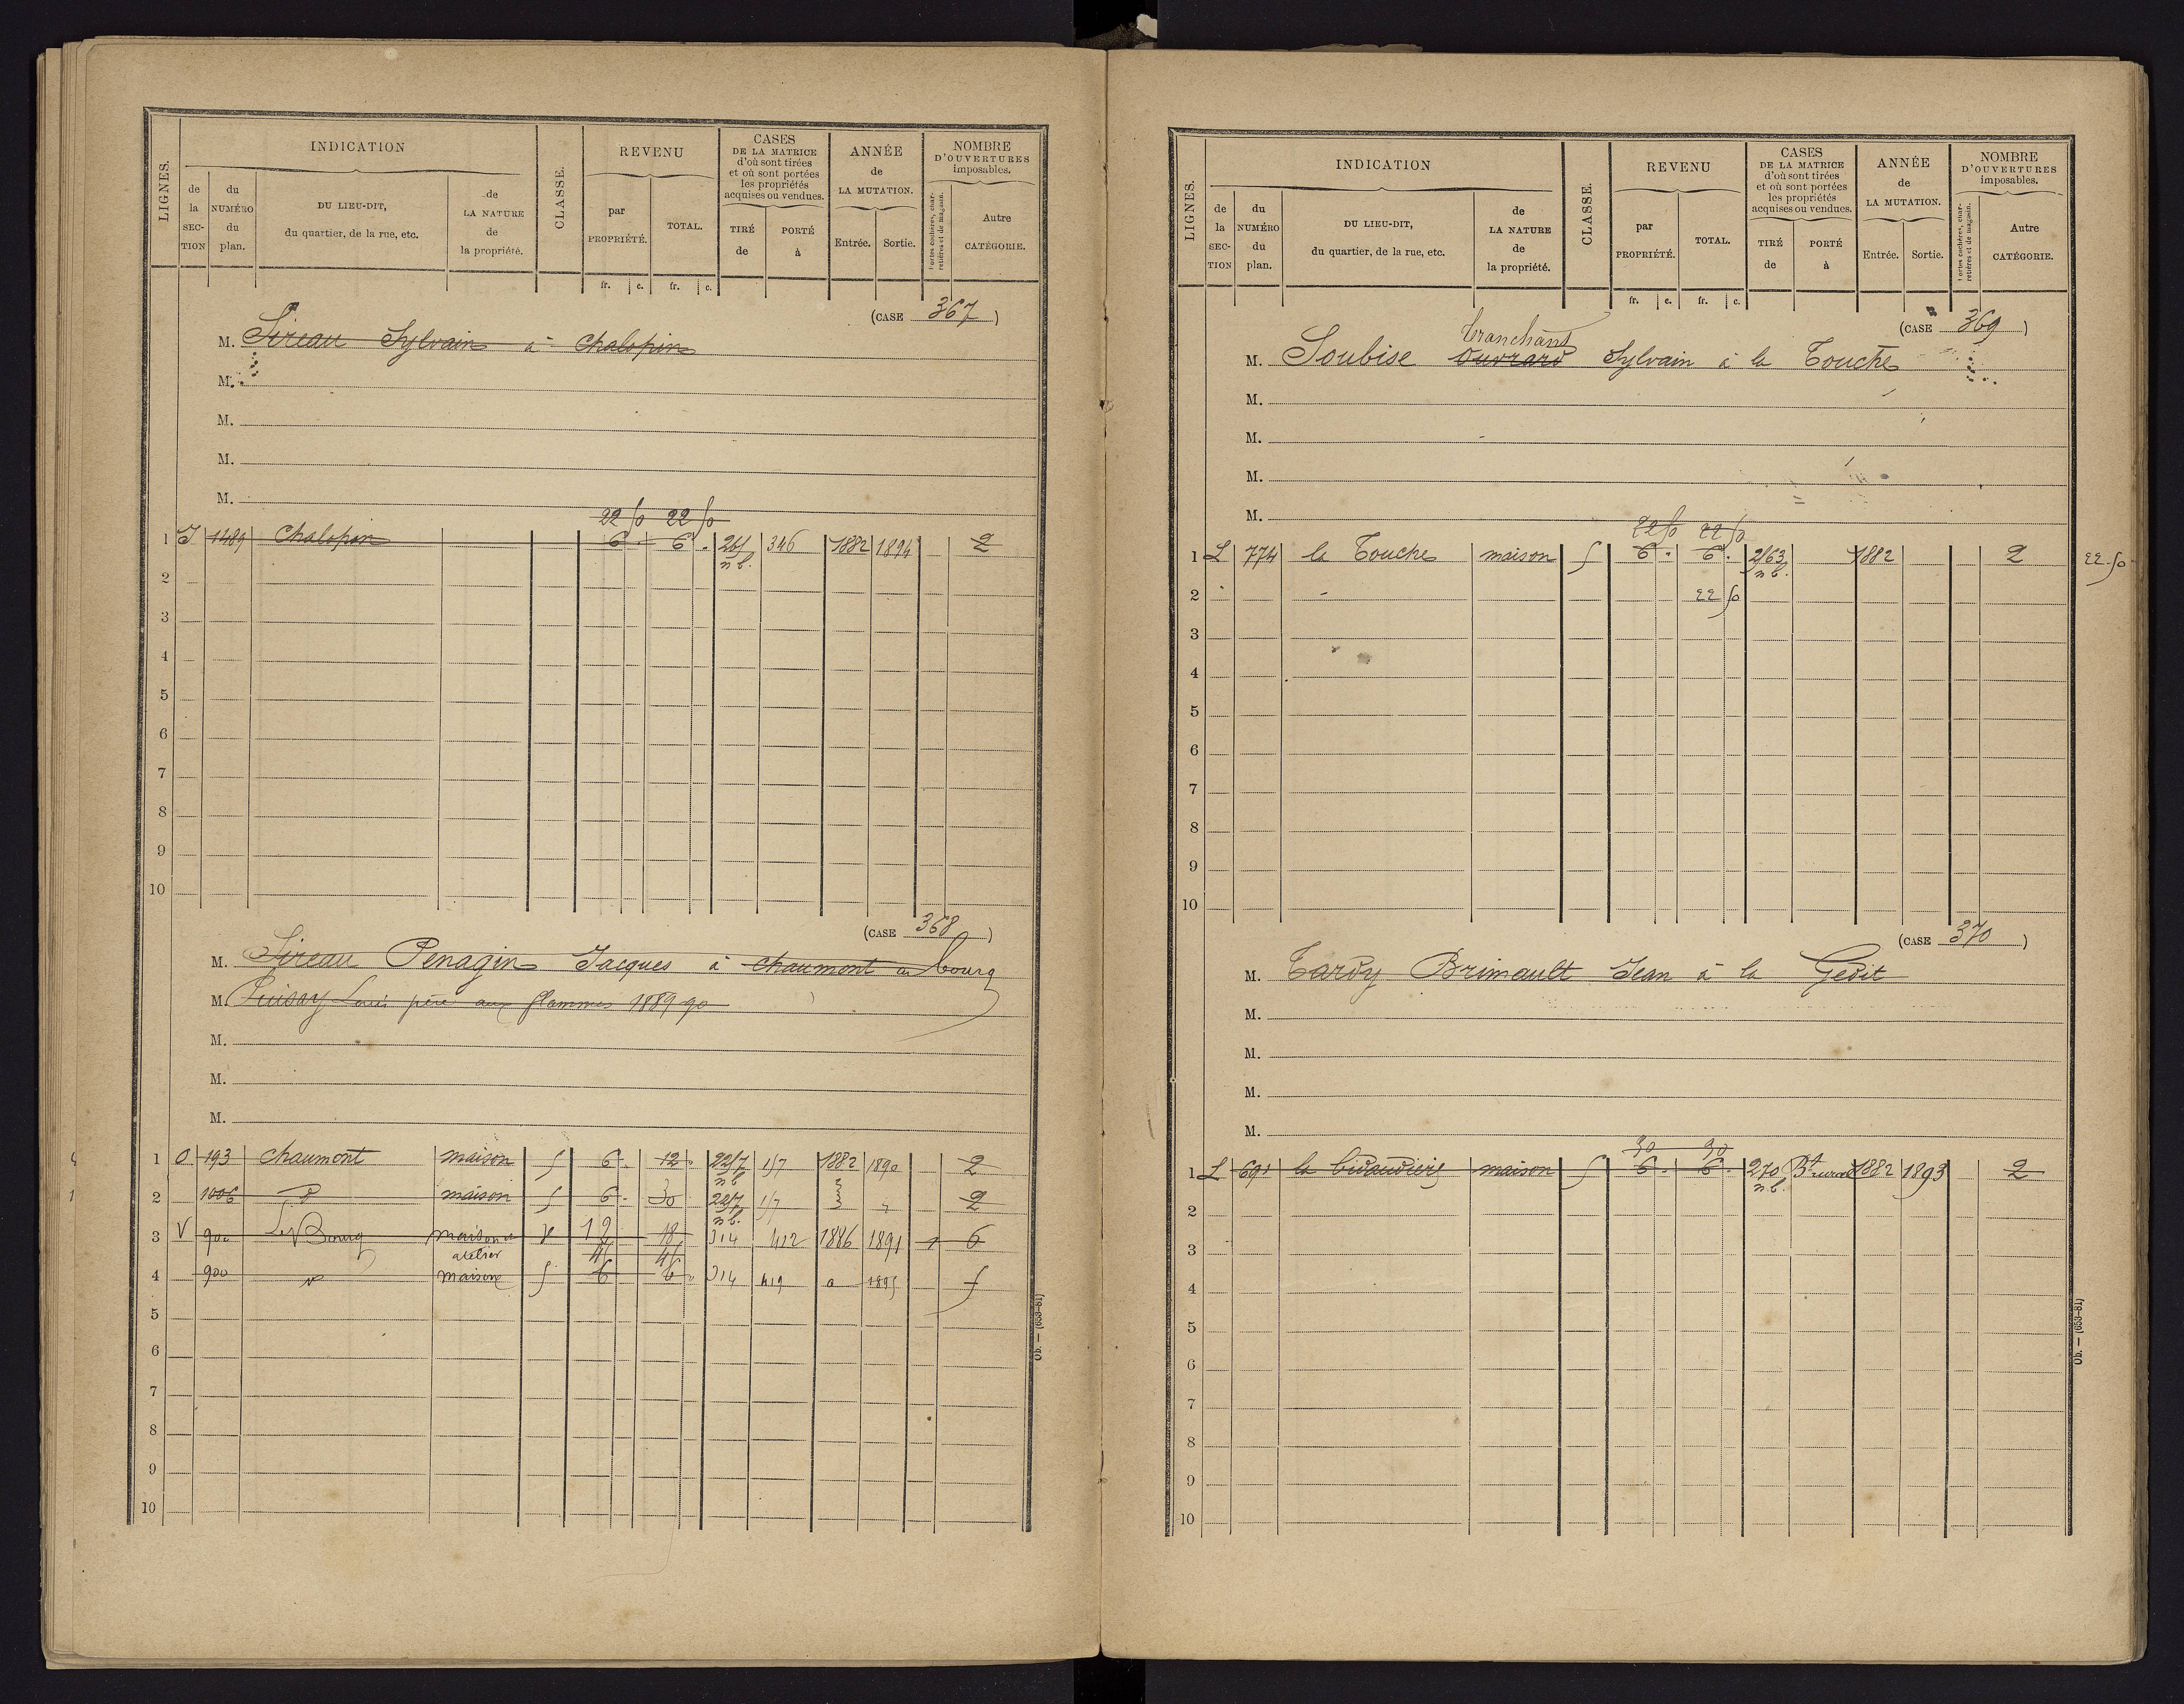 LIGNES.
INDICATION
de la SECTION
du NUMÉRO du plan.
DU LIEU-DIT, du quartier, de la rue, etc.
de LA NATURE de la propriété.
CLASSE.
REVENU
par PROPRIÉTÉ.
TOTAL.
CASES DE LA MATRICE d'où sont tirées et où sont portées les propriétés acquises ou vendues.
TIRÉ de
PORTÉ à
ANNÉE de LA MUTATION.
Entrée.
Sortie.
NOMBRE D'OUVERTURES imposables.
Portes cochères, charretières et de magasin.
Autre CATÉGORIE.
fr. c. fr. c.
(CASE 367)
M. Sireau Sylvain à Chalopin
M.
M.
M.
M.
22 50 22 50
1 1489 Chalopin 6 . 6 . 346 1882 1894 2
n b.
2
3
4
5
6
7
8
9
10
(CASE 368)
M. Sireau Penagin Jacques à chaumont au bourg
M. Puisay Louis père aux flammes 1889 90
M.
M.
M.
1 O 193 chaumont maison 5 6 . 12 . 1882 1890 2
n b
2 1006 d° maison 5 6 . 30 2
n b.
3 V 900 Le Bourg maison et 12 18 314 412 1886 1891 1 6
atelier 45 45
4 900 maison 5 6 6 314 419 1895 5
5
6
7
8
9
10
Ob. — (653-81)
LIGNES.
INDICATION
de la SECTION
du NUMÉRO du plan.
DU LIEU-DIT, du quartier, de la rue, etc.
de LA NATURE de la propriété.
CLASSE.
REVENU
par PROPRIÉTÉ.
TOTAL.
CASES DE LA MATRICE d'où sont tirées et où sont portées les propriétés acquises ou vendues.
TIRÉ de
PORTÉ à
ANNÉE de LA MUTATION.
Entrée.
Sortie.
NOMBRE D'OUVERTURES imposables.
Portes cochères, charretières et de magasin.
Autre CATÉGORIE.
fr. c. fr. c.
(CASE 369)
Tranchant
M. Soubise Ouvrard Sylvain à la Touche
M.
M.
M.
M.
22 50 22 50
1 L 774 la Touche maison 5 6 . 6 . 263 1882 2 22.50
n b.
2 22 50
3
4
5
6
7
8
9
10
(CASE 370)
M. Tardy Brimault Jean à la Gedit
M.
M.
M.
M.
30 30
1 L 691 maison 5 6 . 6 . 270 1882 1893 2
n b.
2
3
4
5
6
7
8
9
10
Ob. — (653-81)